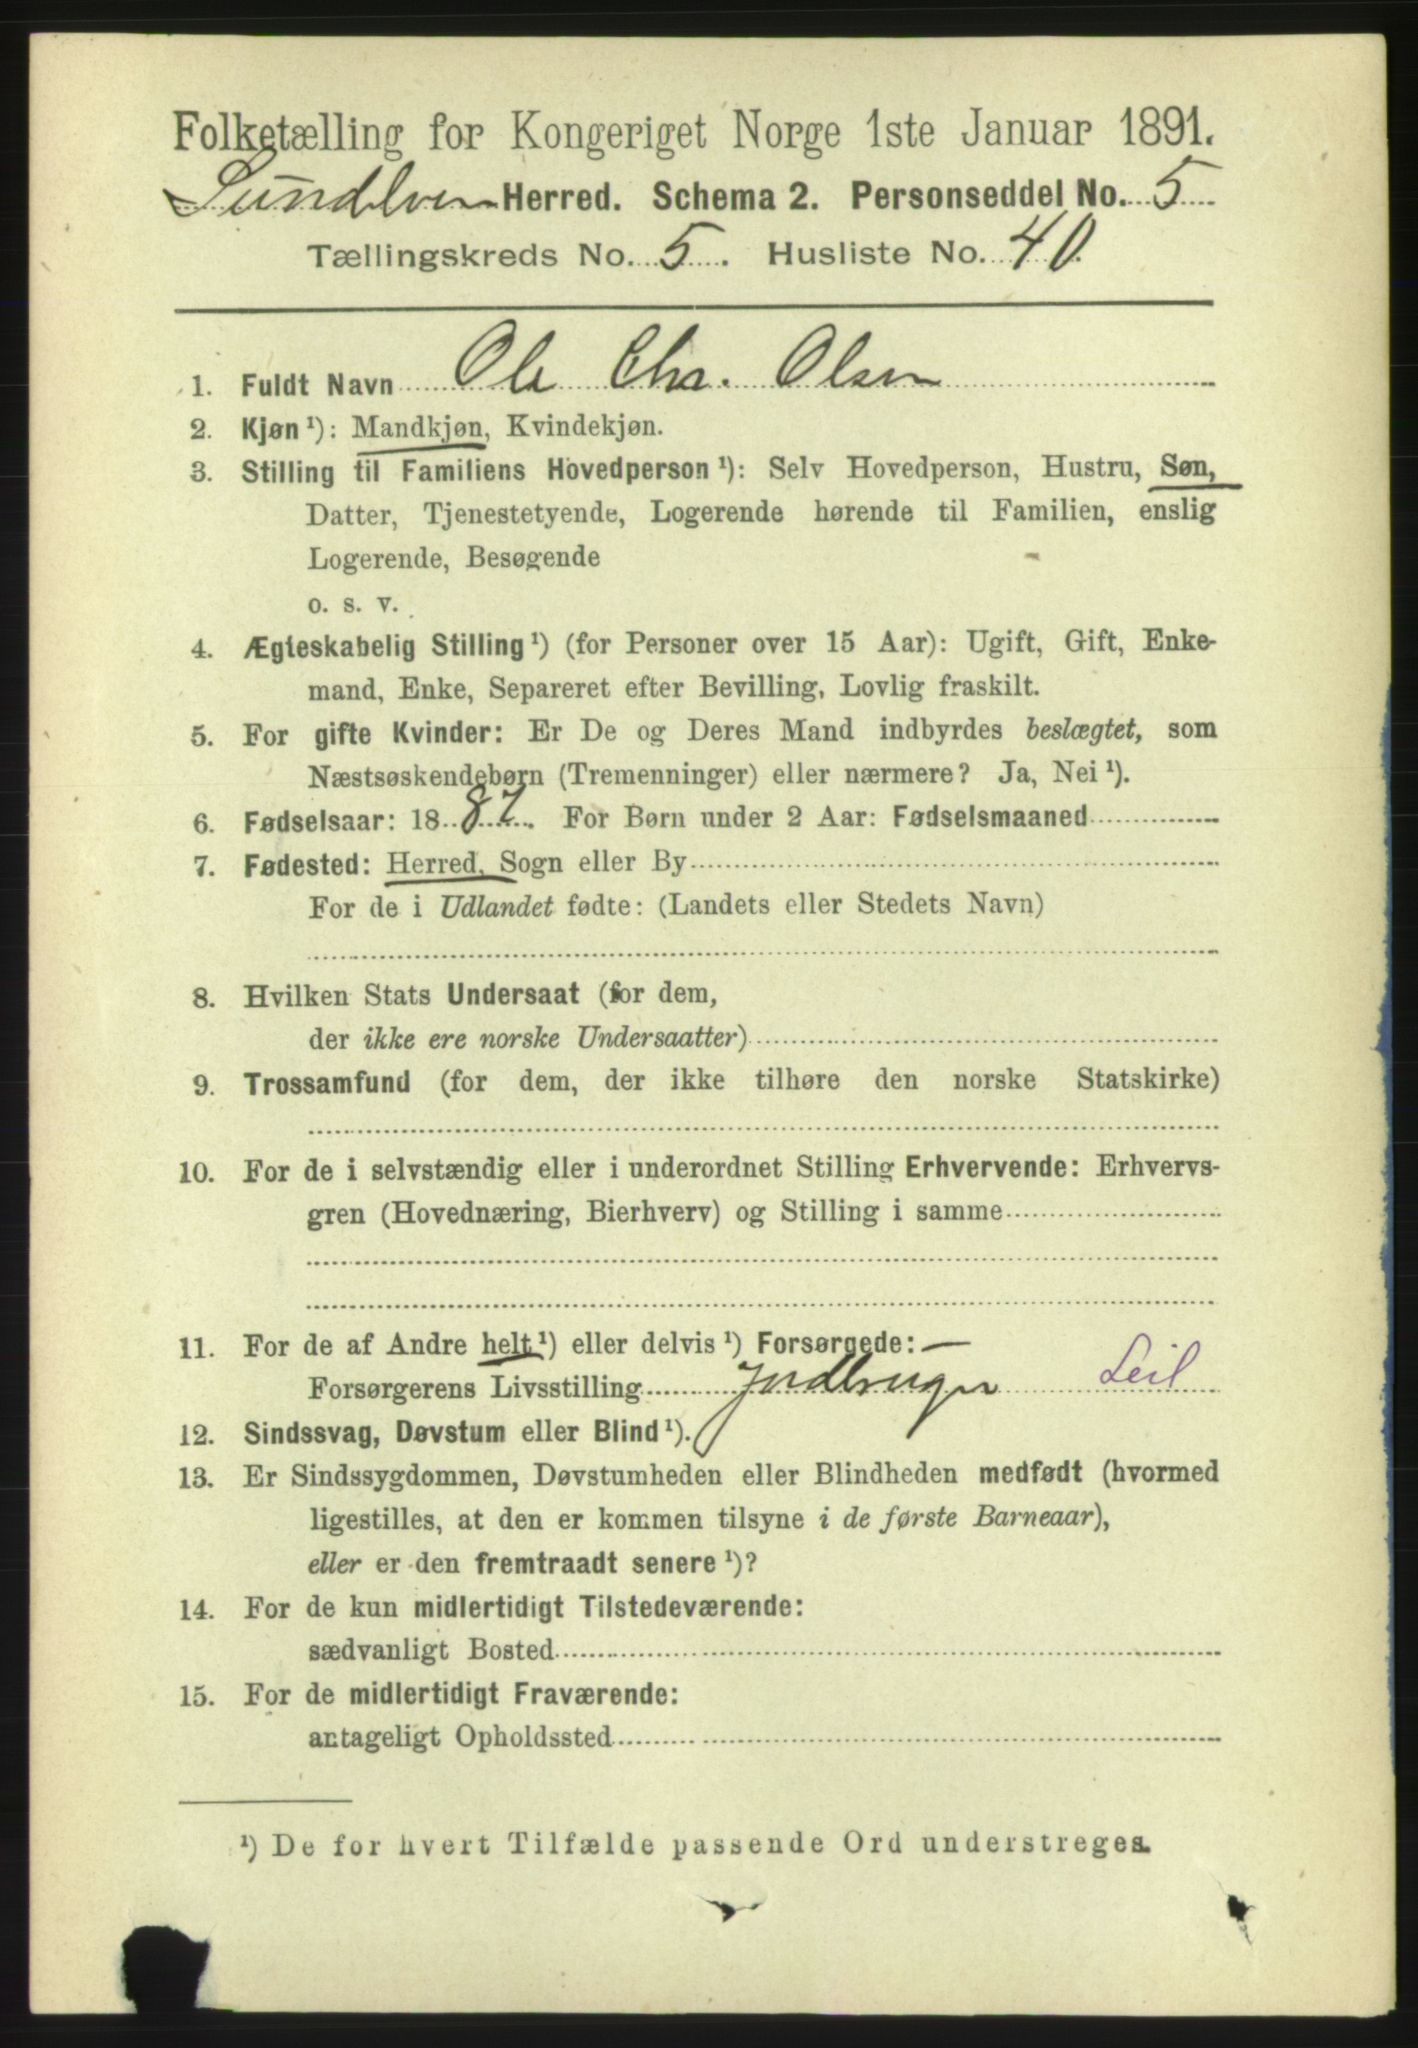 Folketælling for Kongeriget Norge 1ste Januar 1891.
Sundelven Herred. Schema 2. Personseddel No. 5
Tællingskreds No. 5. Husliste No. 40
1. Fuldt Navn Ole Chr. Olsen
2. Kjøn¹): Mandkjøn, Kvindekjøn.
3. Stilling til Familiens Hovedperson¹): Selv Hovedperson, Hustru, Søn,
Datter, Tjenestetyende, Logerende hørende til Familien, enslig
Logerende, Besøgende
o. s. v.
4. Ægteskabelig Stilling¹) (for Personer over 15 Aar): Ugift, Gift, Enke-
mand, Enke, Separeret efter Bevilling, Lovlig fraskilt.
5. For gifte Kvinder: Er De og Deres Mand indbyrdes beslægtet, som
Næstsøskendebørn (Tremenninger) eller nærmere? Ja, Nei¹).
6. Fødselsaar: 1887. For Børn under 2 Aar: Fødselsmaaned
7. Fødested: Herred, Sogn eller By
For de i Udlandet fødte: (Landets eller Stedets Navn)
8. Hvilken Stats Undersaat (for dem,
der ikke ere norske Undersaatter)
9. Trossamfund (for dem, der ikke tilhøre den norske Statskirke)
10. For de i selvstændig eller i underordnet Stilling Erhvervende: Erhvervs-
gren (Hovednæring, Bierhverv) og Stilling i samme
11. For de af Andre helt¹) eller delvis¹) Forsørgede: —
Forsørgerens Livsstilling Jordbruger Leil
12. Sindssvag, Døvstum eller Blind¹).
13. Er Sindssygdommen, Døvstumheden eller Blindheden medfødt (hvormed
ligestilles, at den er kommen tilsyne i de første Barneaar),
eller er den fremtraadt senere¹)?
14. For de kun midlertidigt Tilstedeværende:
sædvanligt Bosted
15. For de midlertidigt Fraværende:
antageligt Opholdssted
¹) De for hvert Tilfælde passende Ord understreges.